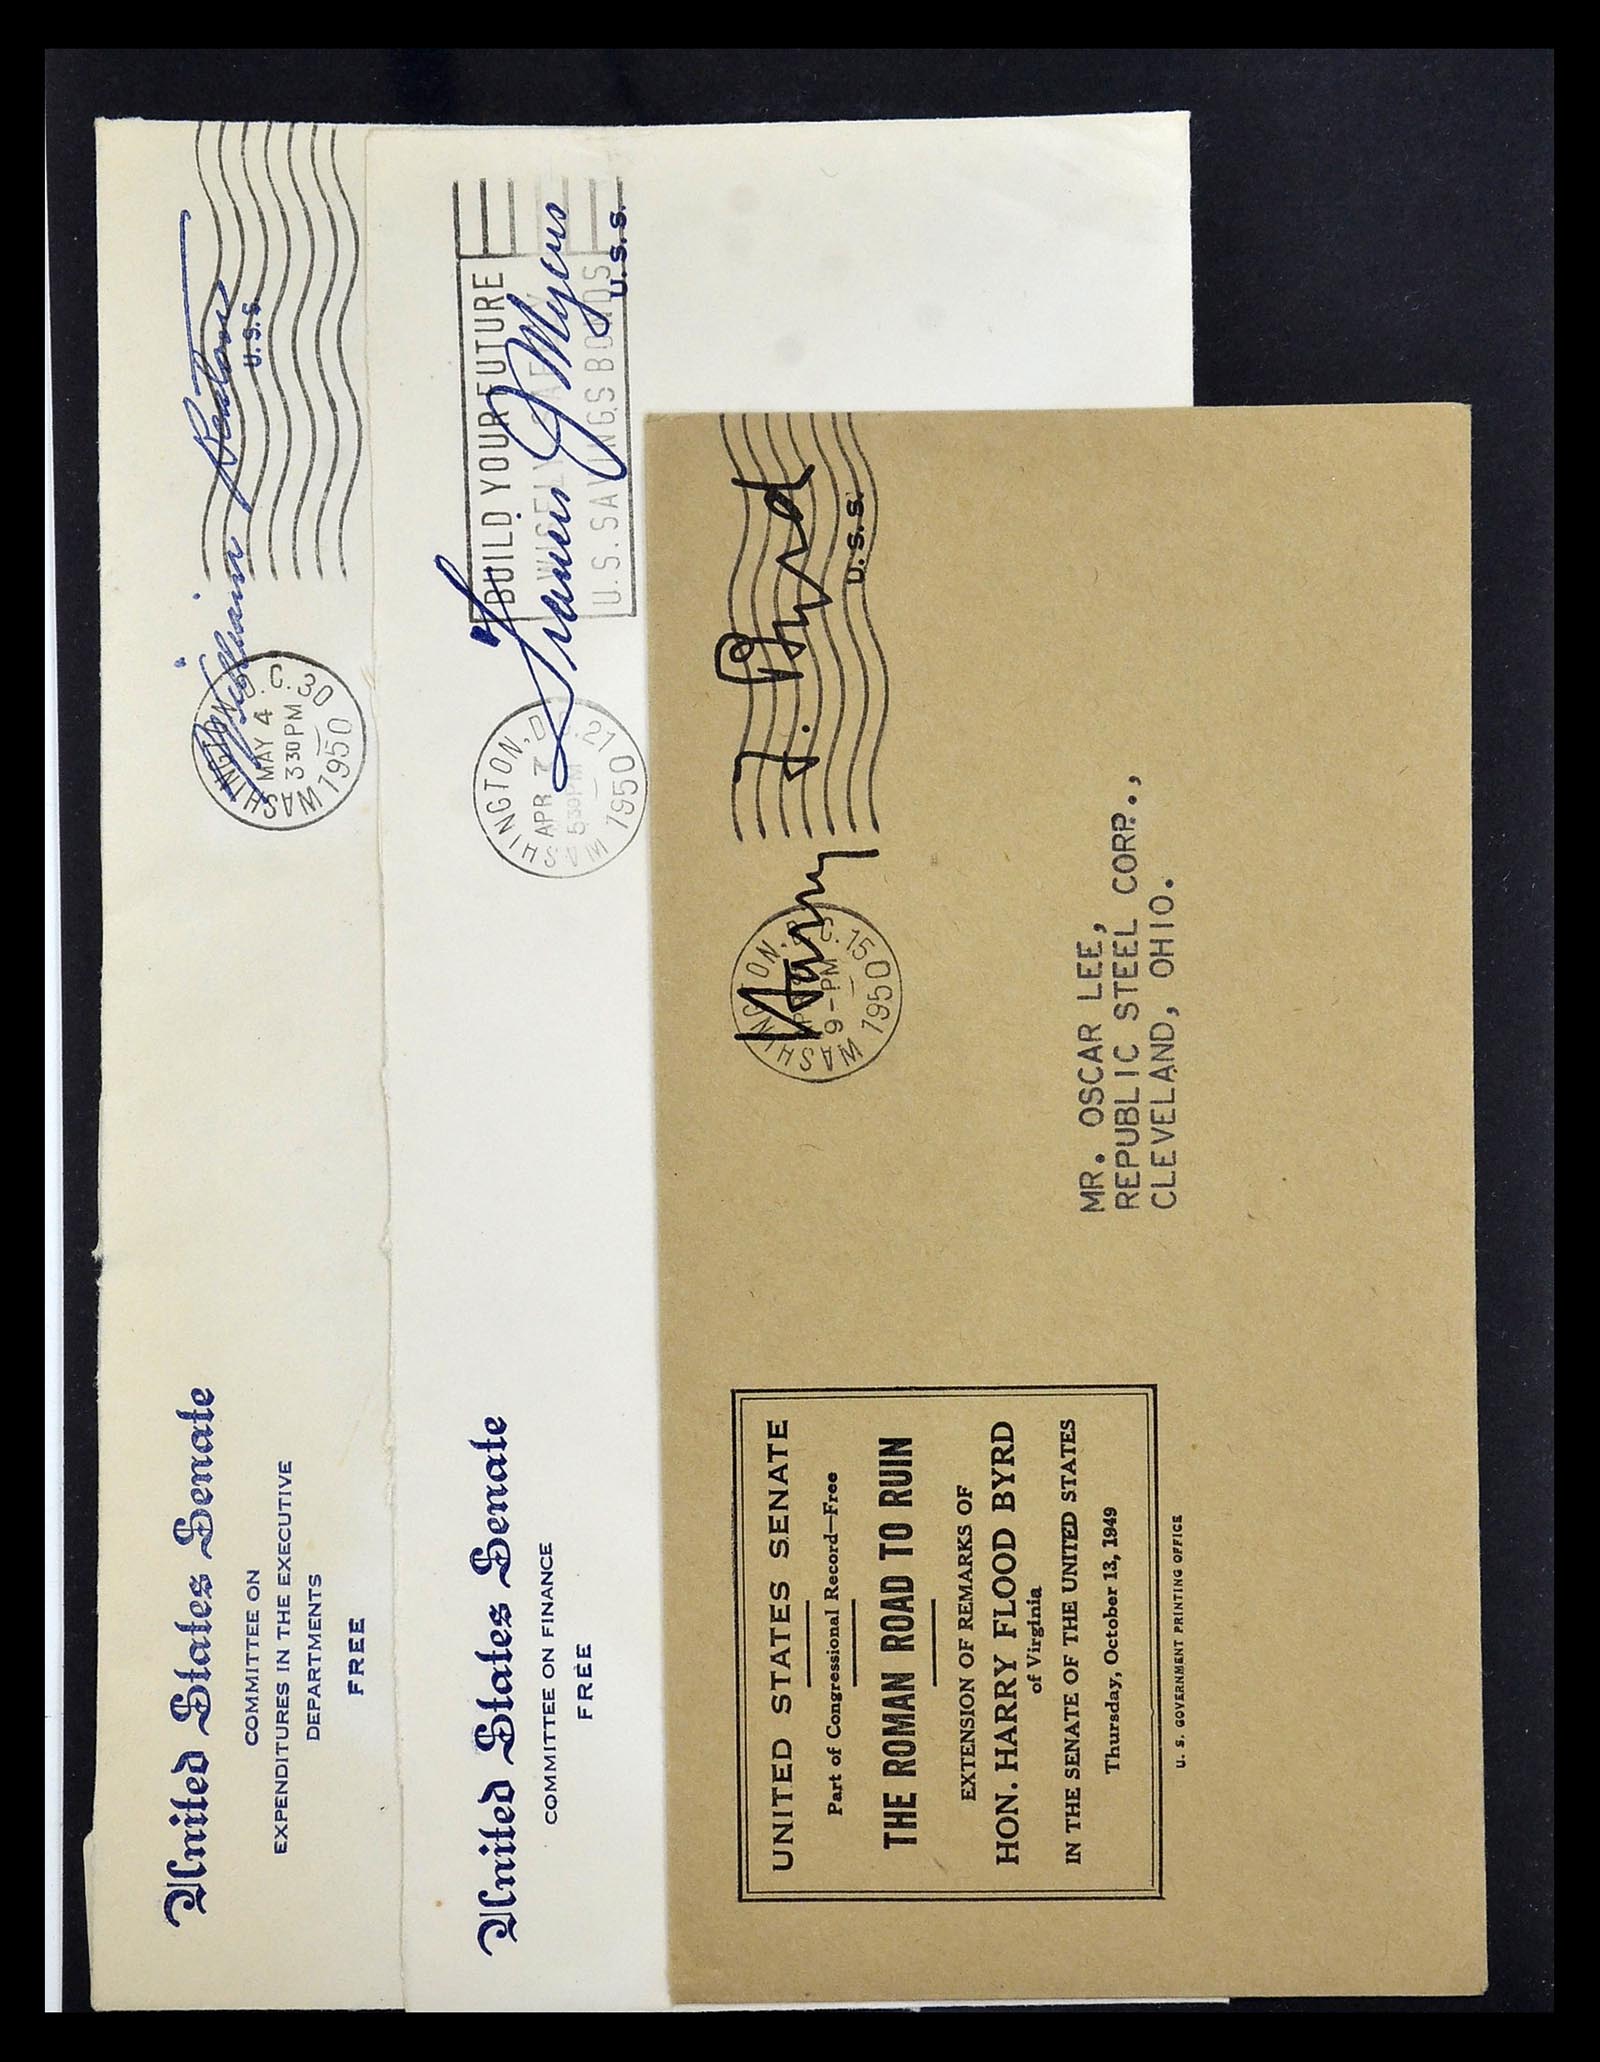 United States Senate
COMMITTEE ON
EXPENDITURES IN THE EXECUTIVE
DEPARTMENTS
FREE
WASHINGTON, D.C. 30
MAY 4
3 30 PM
1950
William Benton
U.S.S.
United States Senate
COMMITTEE ON FINANCE
FREE
WASHINGTON, D.C. 21
APR 7
5 30 PM
1950
BUILD YOUR FUTURE
WISELY
U.S. SAVINGS BONDS
Francis J Myers
U.S.S.
UNITED STATES SENATE
Part of Congressional Record—Free
THE ROMAN ROAD TO RUIN
EXTENSION OF REMARKS OF
HON. HARRY FLOOD BYRD
of Virginia
IN THE SENATE OF THE UNITED STATES
Thursday, October 13, 1949
U. S. GOVERNMENT PRINTING OFFICE
WASHINGTON, D.C. 15
9-PM
1950
Harry F. Byrd
U.S.S.
MR. OSCAR LEE,
REPUBLIC STEEL CORP.,
CLEVELAND, OHIO.